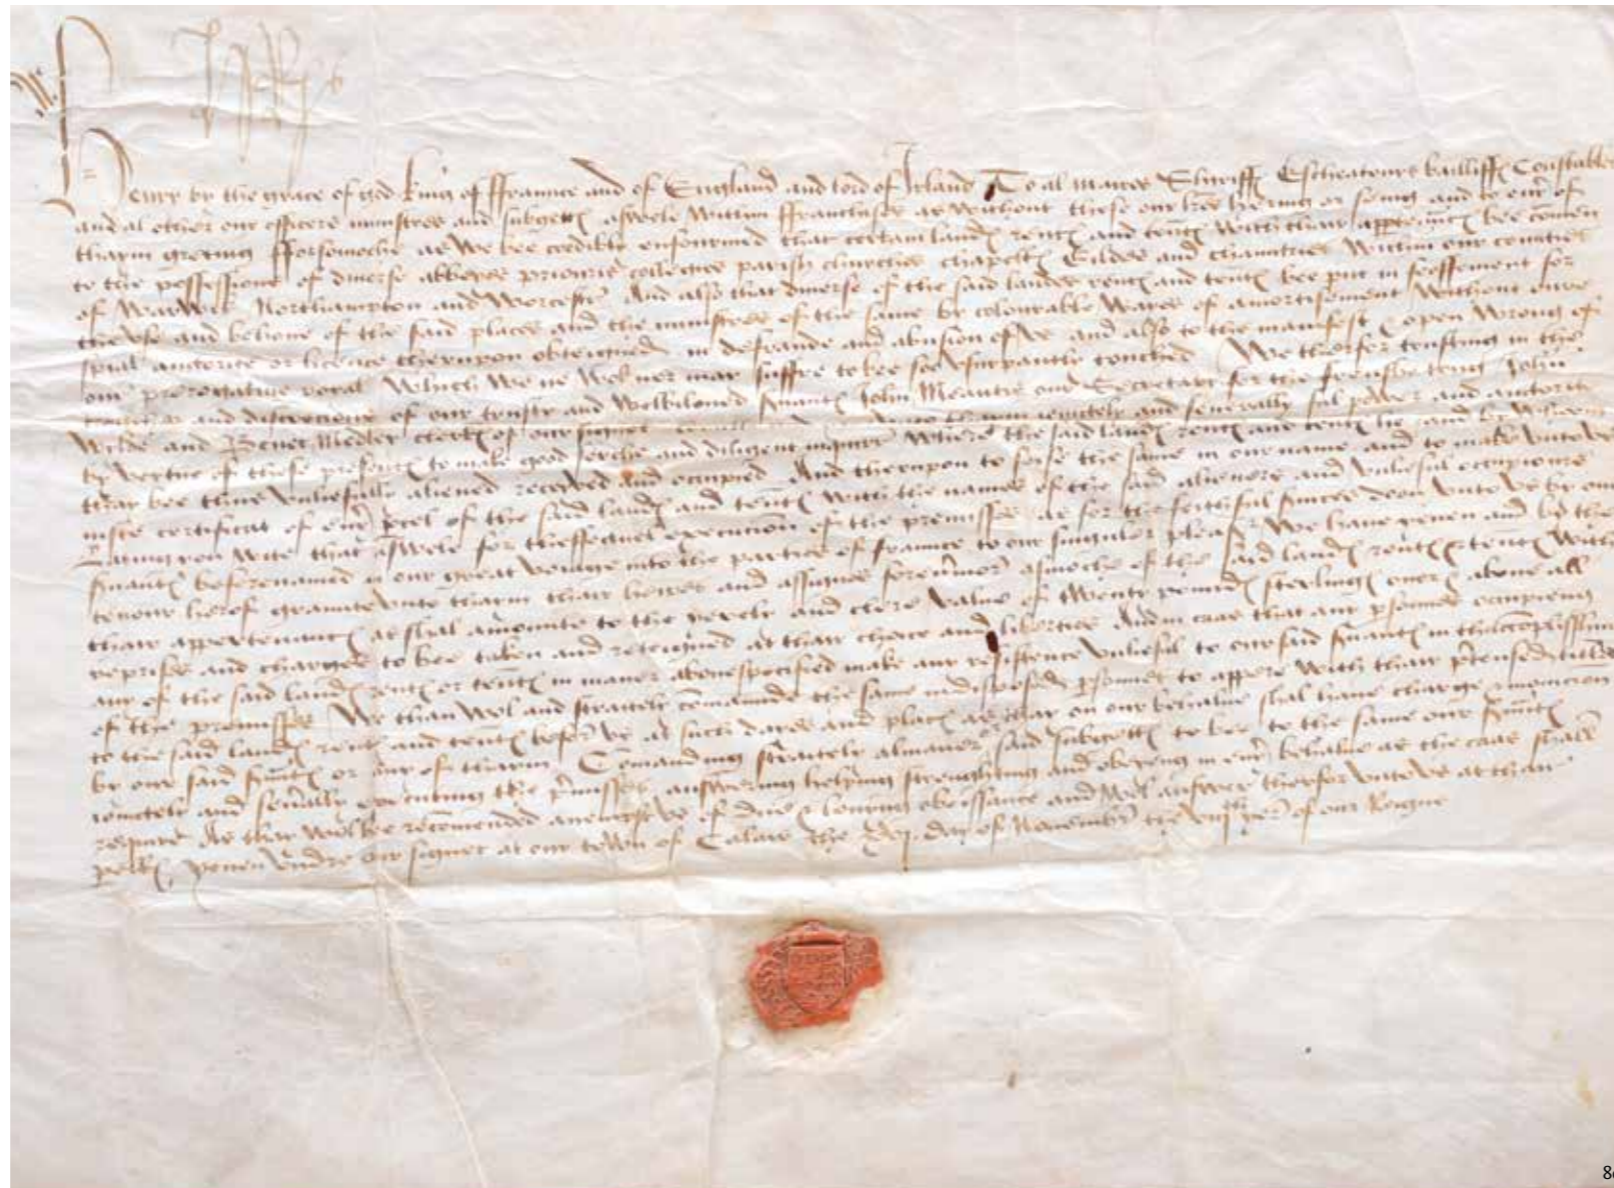 HR
Henry by the grace of god king of ffraunce and of England and lord of Irland To al maires Shiriff Escheatours bailliff Constables
and al other our officers ministres and subgett aswele within ffranchises as without these our lres hering or seing and to eur of
thaim greting fforsomoche as We bee credibly enfourmed that certain land rent and tent with thair bee comen
to the possessions of diuerse abbeyes priouries colleges parish churches chapell Gildes and chauntries within our counties
of Warwik Northampton and Worcestr And also that diuerse of the said landes rent and tent bee put in feoffement for
thuse and behoue of the said places and the ministres of the same by colourable Wayes of amortisement Without oure
spial auctorite or licence therupon obteigned in defraude and abusion of Vs and also to the manifest & open Wrong of
our prerogative roial Which We ne Wol ner may suffre to bee soo vsurpantly touched We therfor trusting in the
and discrecions of our trusty and Welbiloued suant John Meautis our Secretary for the frensh tong John
Wylde and Benet Medley clerk of our signet vnto thaim iointely and seuerally ful power and auctorite
by vertue of these present to make good serche and diligent inquiry Where the said land rent and tent lie and by Whom
thay bee thus vnliefully aliened receyved and occupied And therupon to seise the same in our name and to make vnto Vs
iuste certificat of eury pcel of the said land and tent With the names of the said alienors and vnlieful occupiours
Lating you Wite that asWele for theffectuel execucion of the premisses as for the feithful suices doon vnto Vs by our
suant beforenamed in our great voiage into the parties of fraunce to our singuler pleasr We haue yeuen and by the
tenour herof graunte vnto thaim thair heires and assignes for eumor asmoche of the said land rent & tent With
thair appertenanc as shal amounte to the yerely and clere value of twenty pound sterling ouer & aboue all
reprises and charges to bee taken and reteigned at thair choice and liberties And in caas that any psones occupieng
any of the said land rent or tent in maner abouespecified make any resistence vnlieful to our said suant in thaccomplisshing
of the premisses We than Wol and straitely comaunde the same indisposed psones to appere With thair ptensed titles
to the said land rent and tent befor Vs at such dayes and plac as thay on our behalue shal haue charge & monicion
by our said suant or any of thaim Comaunding straitely almaner our said subgett to bee to the same our suant
iointely and seually executing the pmisses ansWering helping strenghthing and obeyeng in eury behalue as the caas shall
require As thay Wol bee recomended aneinst Vs of due & louing obeissaunce and Wol ansWer therfor vnto Vs at thair
pell yeuen vndre our signet at our toWn of Calais the day of Nouembr the viij yer of our Reigne